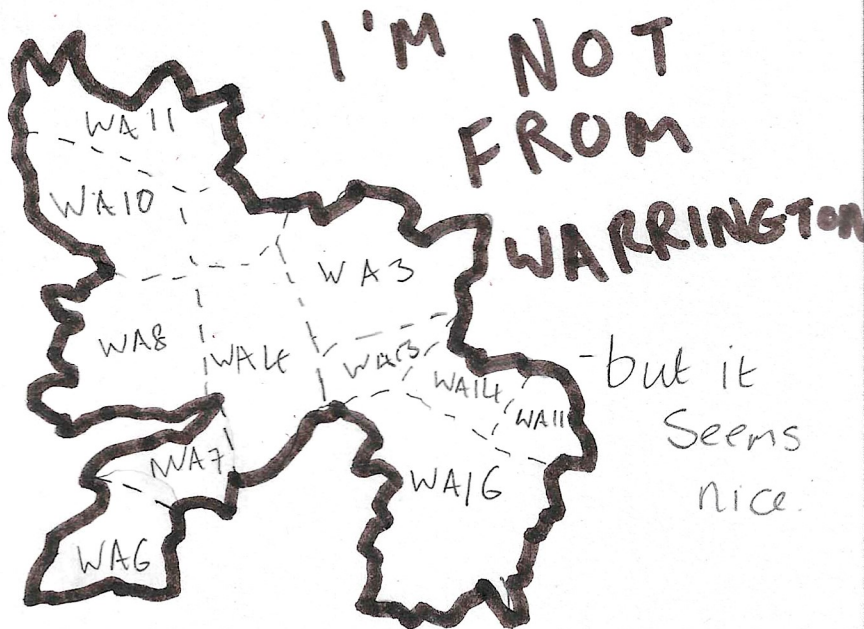 I'M NOT
FROM
WARRINGTON
-but it
seems
nice.
WA11
WA10
WA3
WA8
WA4
WA13
WA14
WA11
WA7
WA16
WA6